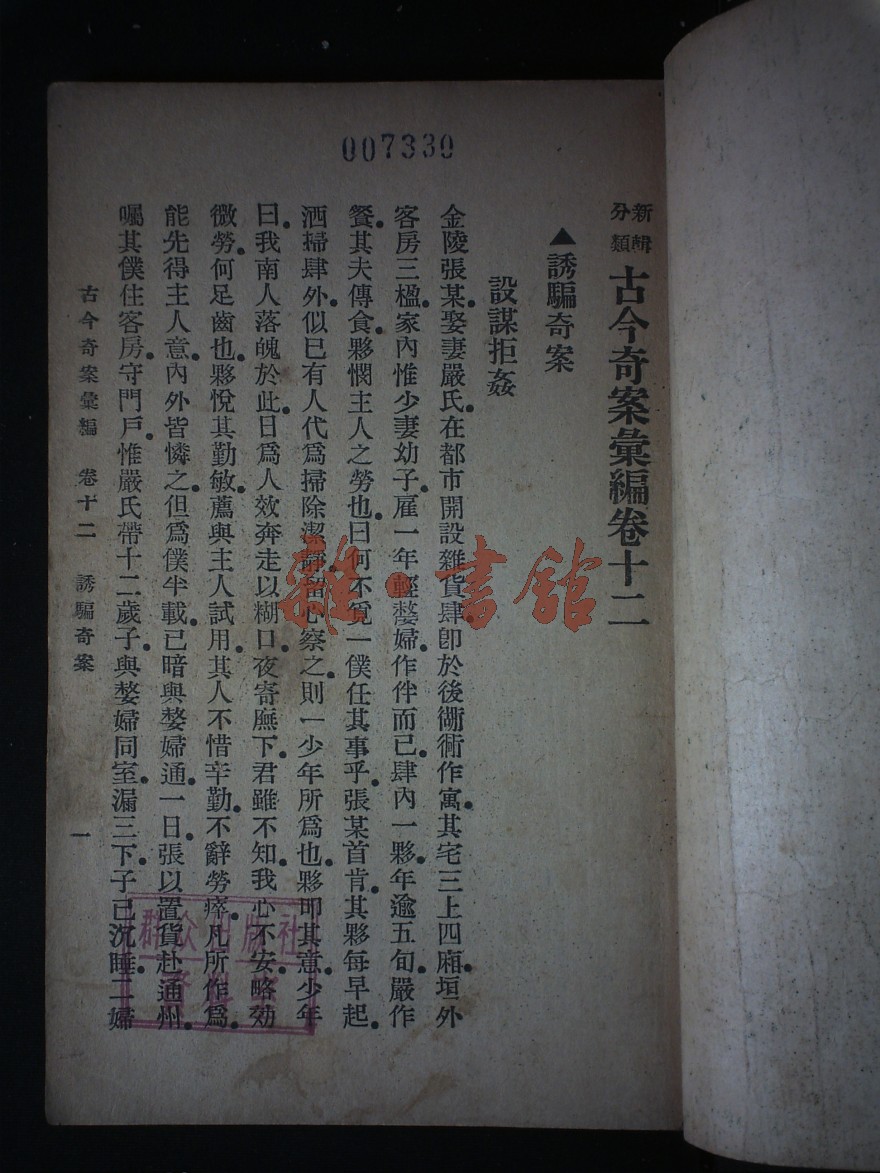 007330
新輯分類 古今奇案彙編卷十二
▲誘騙奇案
設謀拒姦
金陵張某娶妻嚴氏在都市開設雜貨肆卽於後衚衕作寓其宅三上四廂垣外
客房三楹家內惟少妻幼子雇一年輕嫠婦作伴而已肆內一夥年逾五旬嚴作
餐其夫傳食夥憫主人之勞也曰何不覓一僕任其事乎張某首肯其夥每早起
洒掃肆外似已有人代爲掃除潔靜留心察之則一少年所爲也夥叩其意少年
曰我南人落魄於此日爲人效奔走以糊口夜寄廡下君雖不知我心不安略効
微勞何足齒也夥悅其勤敏薦與主人試用其人不惜辛勤不辭勞瘁凡所作爲
能先得主人意內外皆憐之但爲僕半載已暗與嫠婦通一日張以置貨赴通州
囑其僕住客房守門戶惟嚴氏帶十二歲子與嫠婦同室漏三下子已沉睡二婦
古今奇案彙編 卷十二 誘騙奇案 一
雜·書館
群众出版社